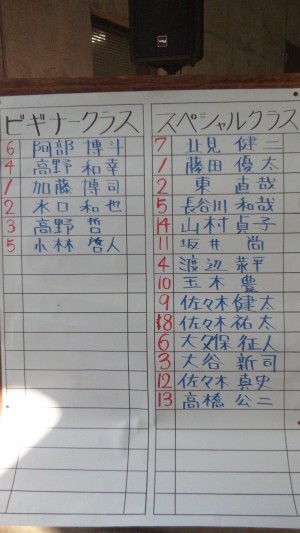 ビギナークラス
6 阿部 博斗
4 高野 和幸
1 加藤 博司
2 水口 和也
3 高野 哲
5 小林 啓人
スペシャルクラス
7 北見 健二
1 藤田 優太
2 東 直哉
5 長谷川 和哉
14 山村 貞子
11 坂井 尚
4 渡辺 恭平
10 玉木 豊
9 佐々木 健太
8 佐々木 祐太
6 大久保 征人
3 大谷 新司
12 佐々木 真史
13 高橋 公二